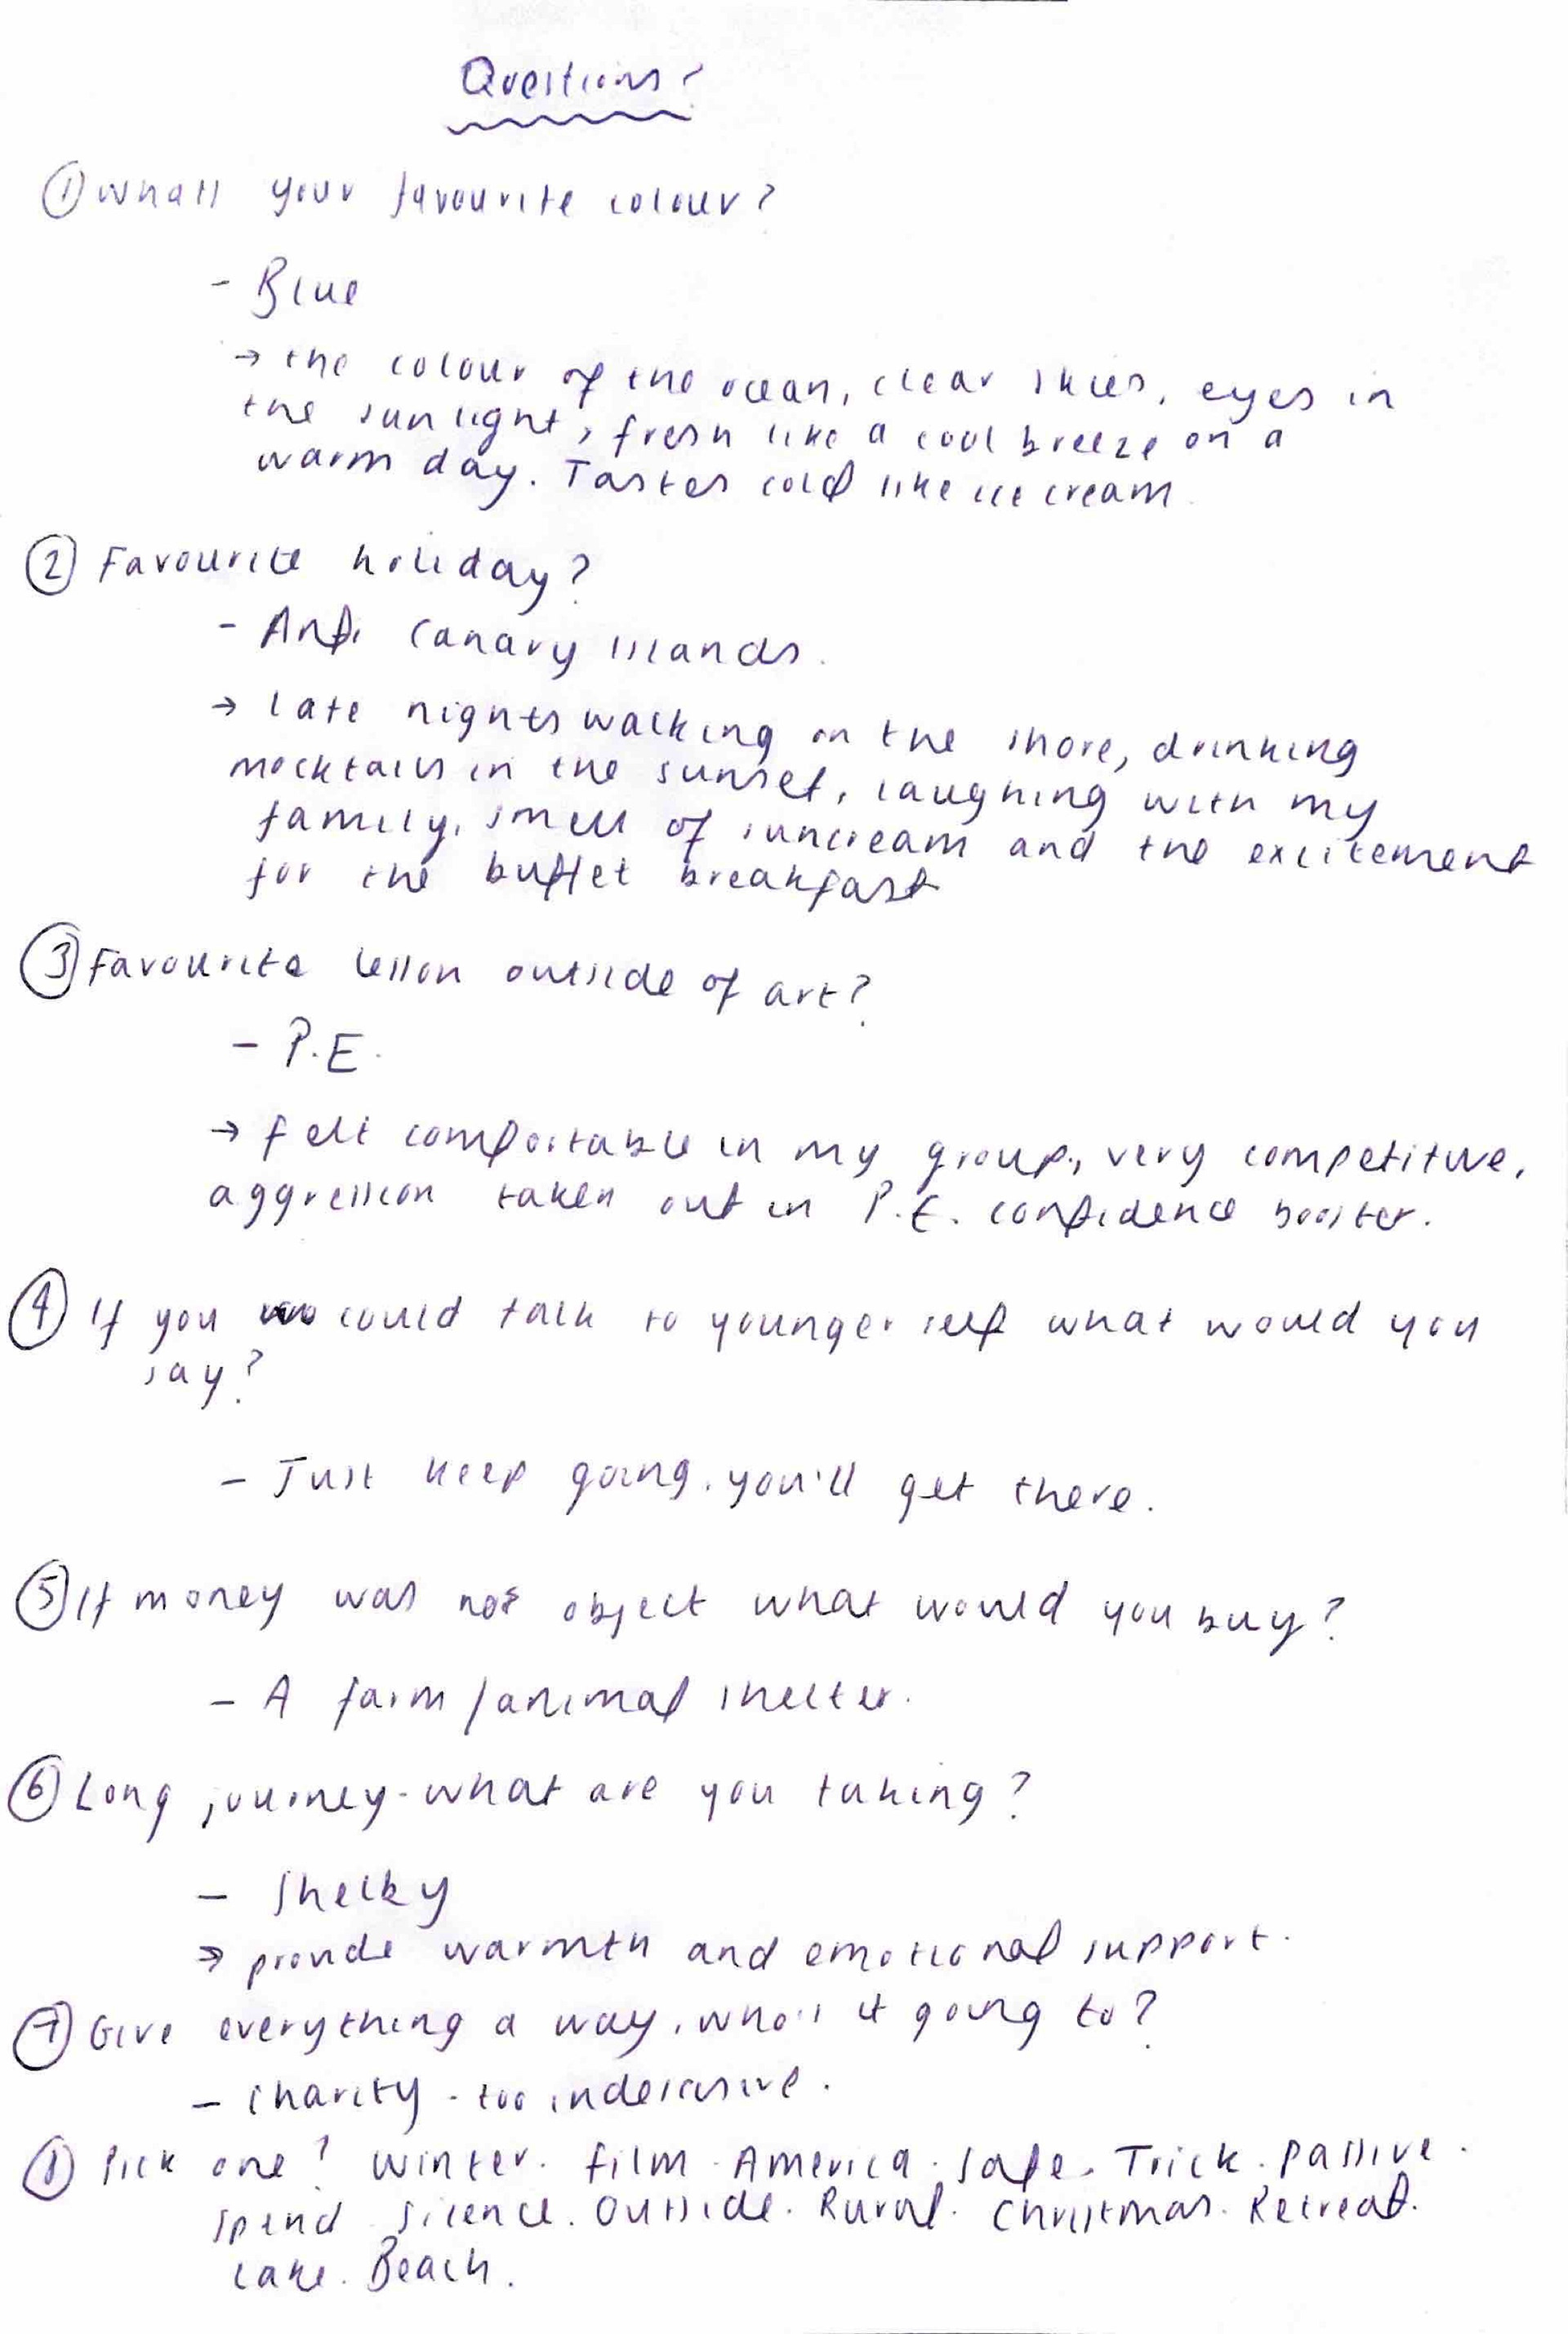 Questions?
① What's your favourite colour?
- Blue
→ the colour of the ocean, clear skies, eyes in
the sunlight, fresh like a cool breeze on a
warm day. Tastes cold like ice cream.
② Favourite holiday?
- Canary Islands.
→ late nights walking on the shore, drinking
mocktails in the sunset, laughing with my
family, smell of suncream and the excitement
for the buffet breakfast
③ Favourite lesson outside of art?
- P.E.
→ felt comfortable in my group, very competitive,
aggression taken out in P.E. confidence booster.
④ If you could talk to younger self what would you
say?
- Just keep going, you'll get there.
⑤ If money was no object what would you buy?
- A farm/animal shelter.
⑥ Long journey - what are you taking?
- Shelby
→ provide warmth and emotional support.
⑦ Give everything a way, who's it going to?
- Charity - too indecisive.
⑧ Pick one? Winter. Film. America. Safe. Trick. Passive.
Spend. Silence. Outside. Rural. Christmas. Retreat.
Lake. Beach.